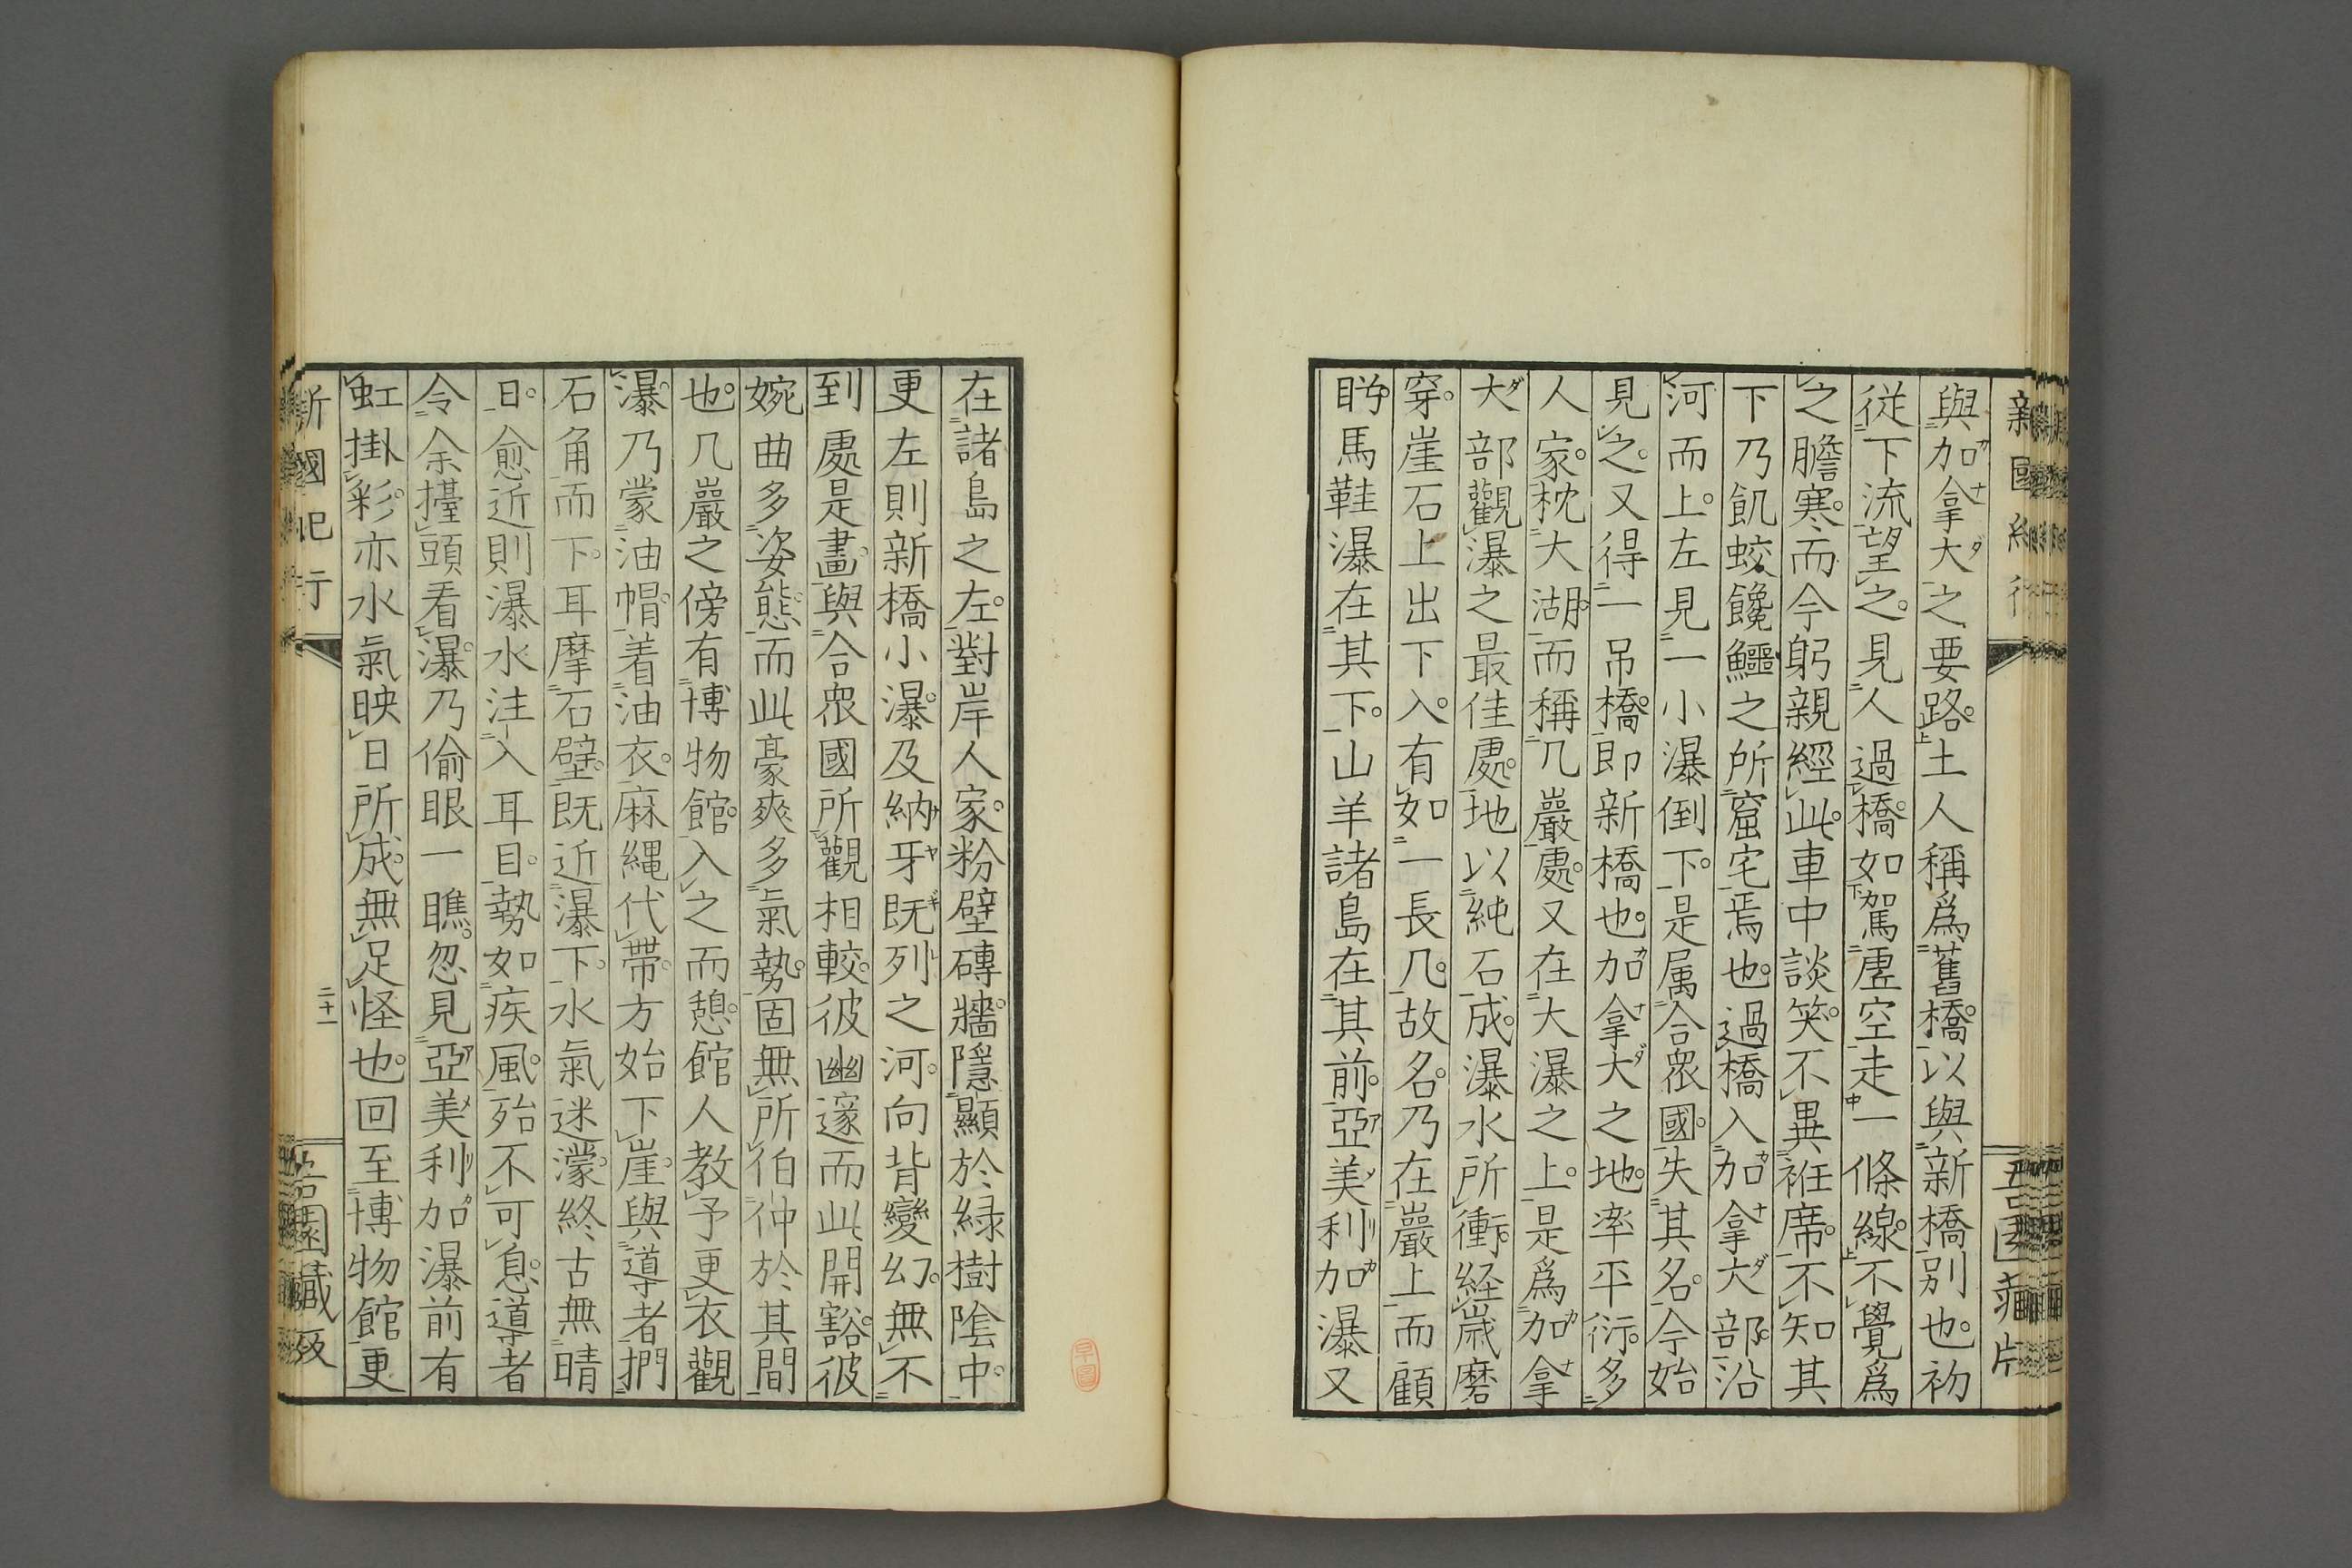 新國紀行
與加拿大之要路。土人稱爲舊橋。以與新橋別也。初
從下流望之。見人過橋。如駕虛空走一條線。不覺爲
之膽寒。而今躬親經此。車中談笑。不異袵席。不知其
下乃飢蛟饞鱷之所窟宅焉也。過橋入加拿大部。沿
河而上。左見一小瀑倒下。是属合衆國。失其名。今始
見之。又得一吊橋。即新橋也。加拿大之地。率平衍。多
人家。枕大湖。而稱几巖處。又在大瀑之上。是爲加拿
大部觀瀑之最佳處。地以純石成。瀑水所衝。経歲磨
穿。崖石上出下入。有如一長几。故名。乃在巖上而顧
眄。馬鞋瀑在其下。山羊諸島在其前。亞美利加瀑又
在諸島之左。對岸人家。粉壁磚牆。隱顯於緑樹陰中。
更左則新橋小瀑。及納牙既列之河。向背變幻。無不
到處是畫。與合衆國所觀相較。彼幽邃而此開豁。彼
婉曲多姿態。而此豪爽多氣勢。固無所伯仲於其間
也。几巖之傍有博物館。入之而憩。館人教予更衣觀
瀑。乃蒙油帽。着油衣。麻縄代帶。方始下崖。與導者捫
石角而下。耳摩石壁。既近瀑下。水氣迷濛。終古無晴
日。愈近則瀑水注入耳目。勢如疾風。殆不可息。導者
令余擡頭看瀑。乃偷眼一瞧。忽見亞美利加瀑前有
虹掛彩。亦水氣映日所成。無足怪也。回至博物館。更
新國紀行
二十一
藏版